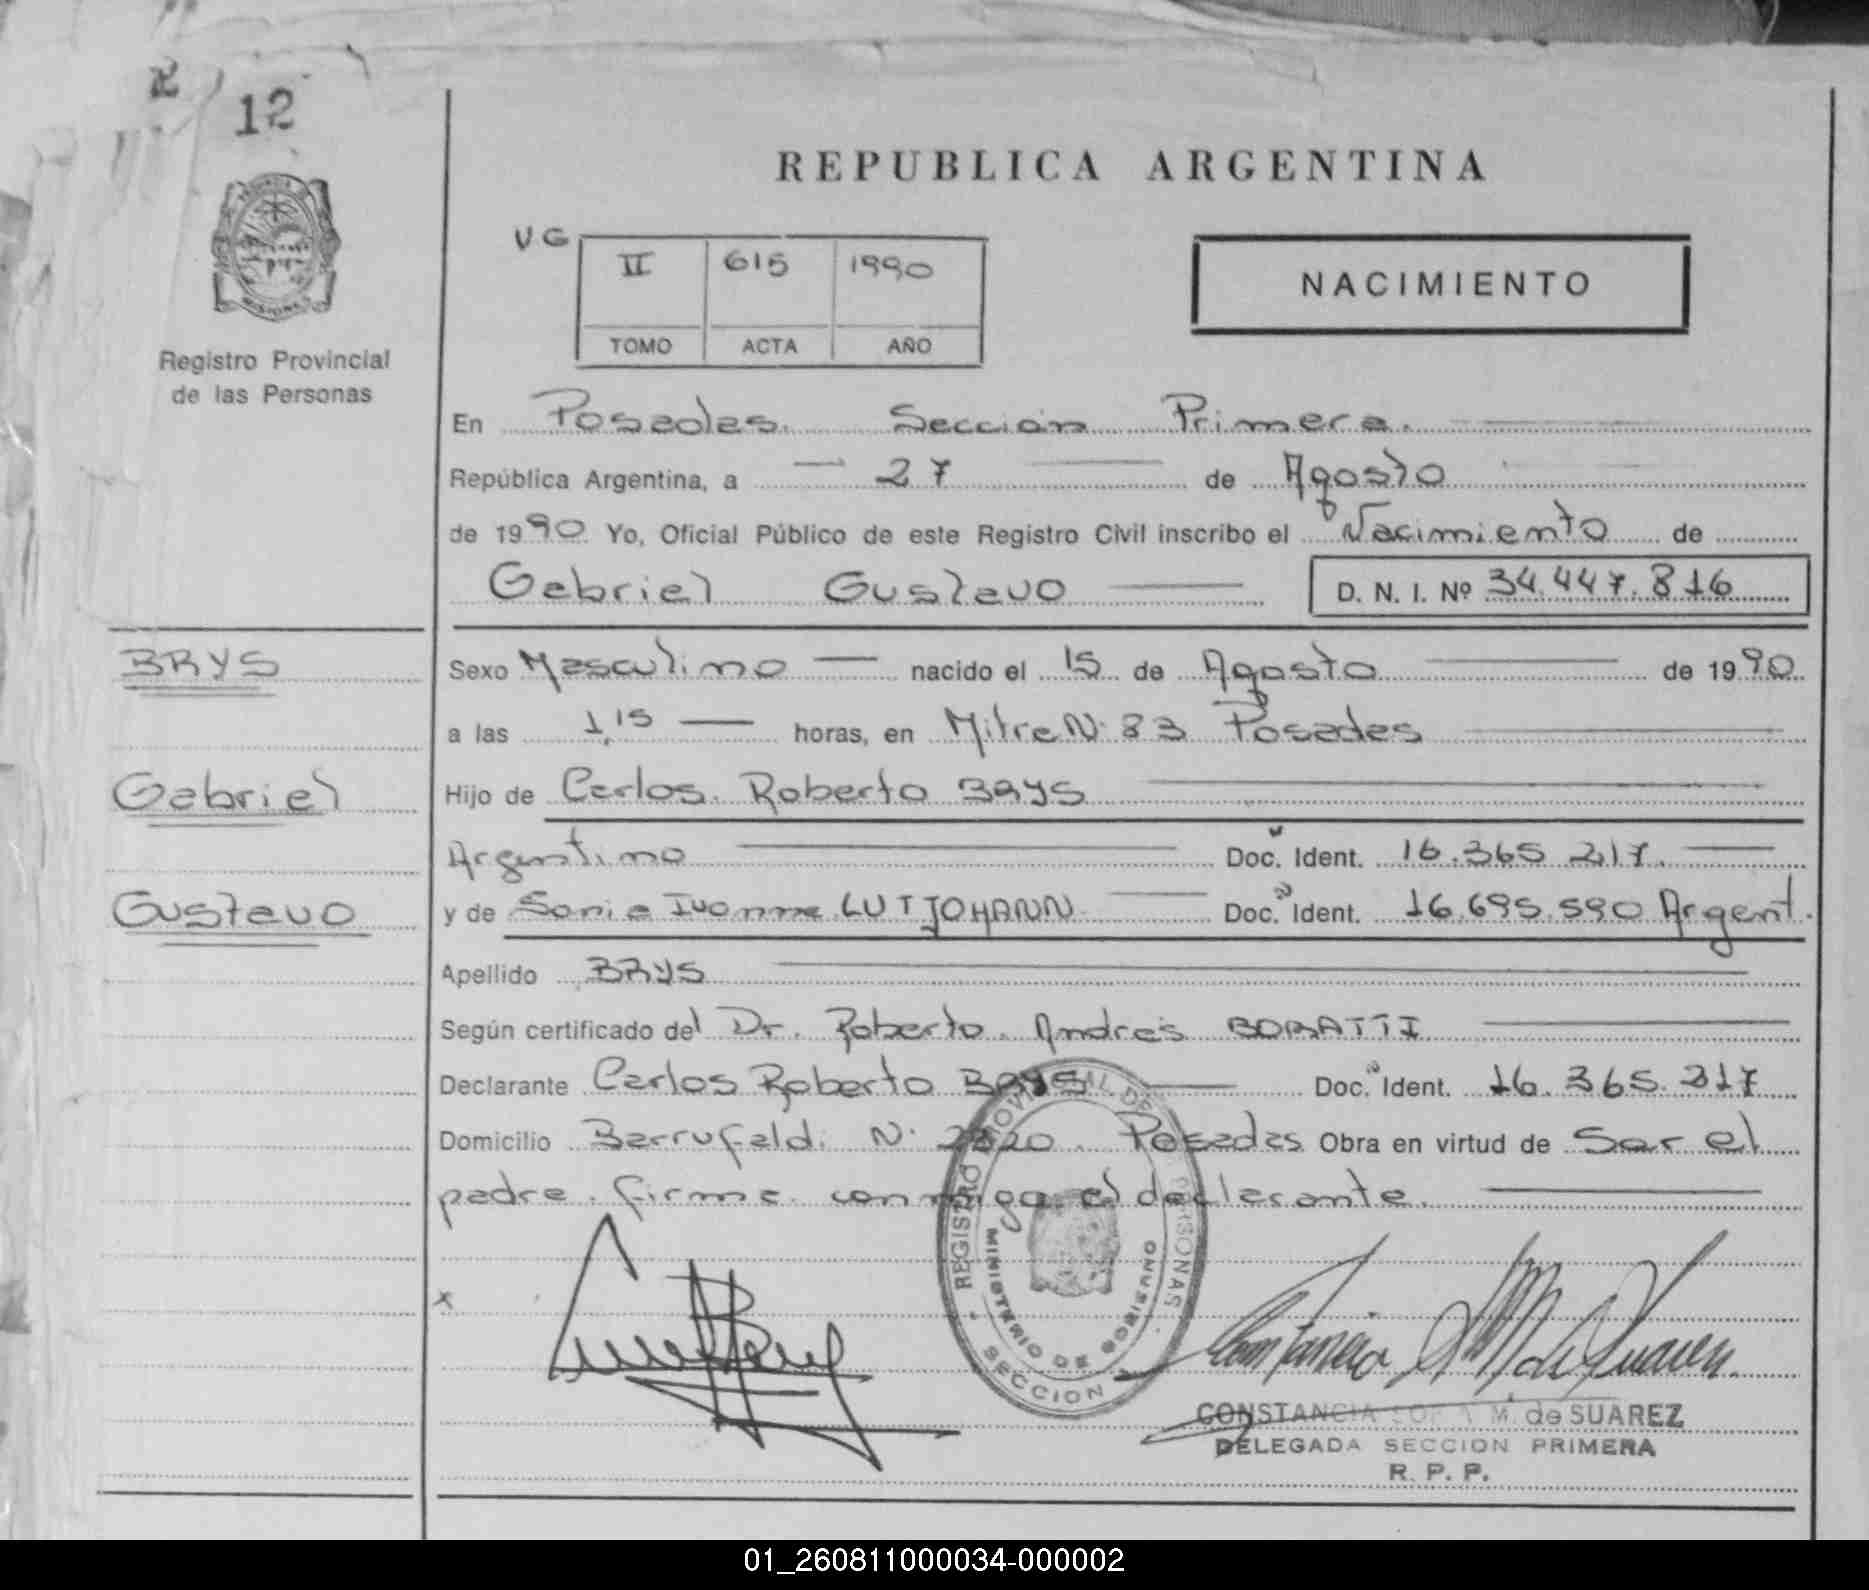 12
REPUBLICA ARGENTINA
VG
II 615 1990
TOMO ACTA AÑO
NACIMIENTO
Registro Provincial
de las Personas
En Posadas. Sección Primera.
República Argentina, a 27 de Agosto
de 1990 Yo, Oficial Público de este Registro Civil inscribo el Nacimiento de
Gabriel Gustavo D. N. I. Nº 34.447.816
BRYS
Sexo Masculino nacido el 15 de Agosto de 1990
a las 1,15 horas, en Mitre Nº 83 Posadas
Gabriel
Hijo de Carlos Roberto BRYS
Argentino Doc. Ident. 16.365.217.
Gustavo
y de Sonia Ivonne LUTJOHANN Doc. Ident. 16.695.590 Argent.
Apellido BRYS
Según certificado del Dr. Roberto Andrés BORATTI
Declarante Carlos Roberto BRYS Doc. Ident. 16.365.217
Domicilio Barrufaldi Nº 2820. Posadas Obra en virtud de Ser el
padre. firma conmigo el declarante.
REGISTRO PROVINCIAL DE PERSONAS
MINISTERIO DE GOBIERNO
SECCION
CONSTANCIA M. de SUAREZ
DELEGADA SECCION PRIMERA
R. P. P.
01_260811000034-000002